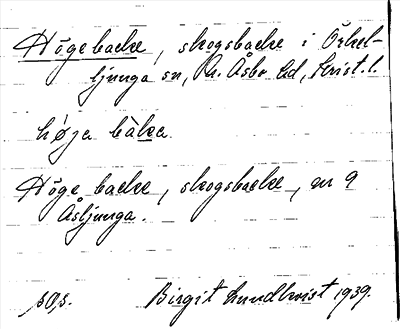 Högebacke, skogsbacke i Örkel-
ljunga sn, N. Åsbo hd, Krist. l.
høja bàka
Höge backe, skogsbacke, en 9
Åsljunga.
Birgit Lundkvist 1939.